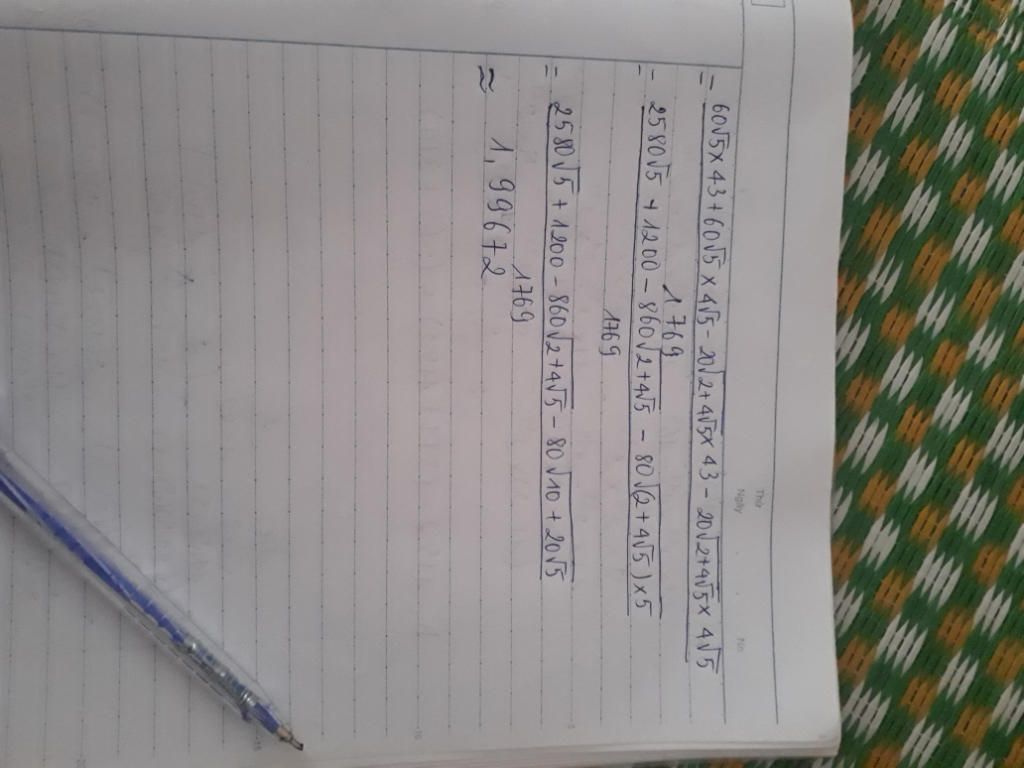 Thứ
Ngày
No.
= 60√5 x 43 + 60√5 x 4√5 - 20√2+4√5 x 43 - 20√2+4√5 x 4√5
1769
= 2580√5 + 1200 - 860√2+4√5 - 80√(2+4√5) x 5
1769
= 2580√5 + 1200 - 860√2+4√5 - 80√10+20√5
1769
≈ 1,99672